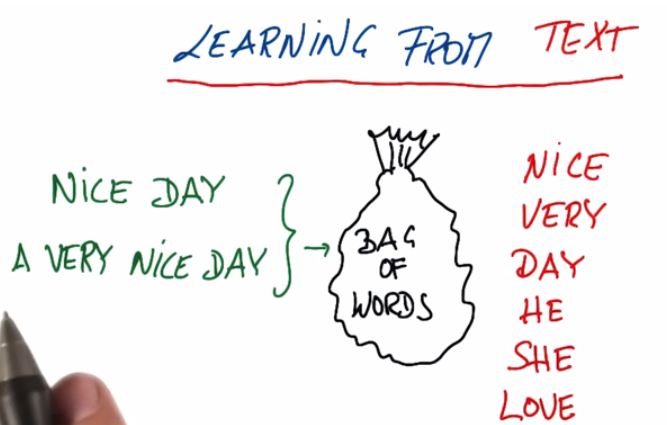 LEARNING FROM TEXT
NICE DAY
A VERY NICE DAY
BAG
OF
WORDS
NICE
VERY
DAY
HE
SHE
LOVE